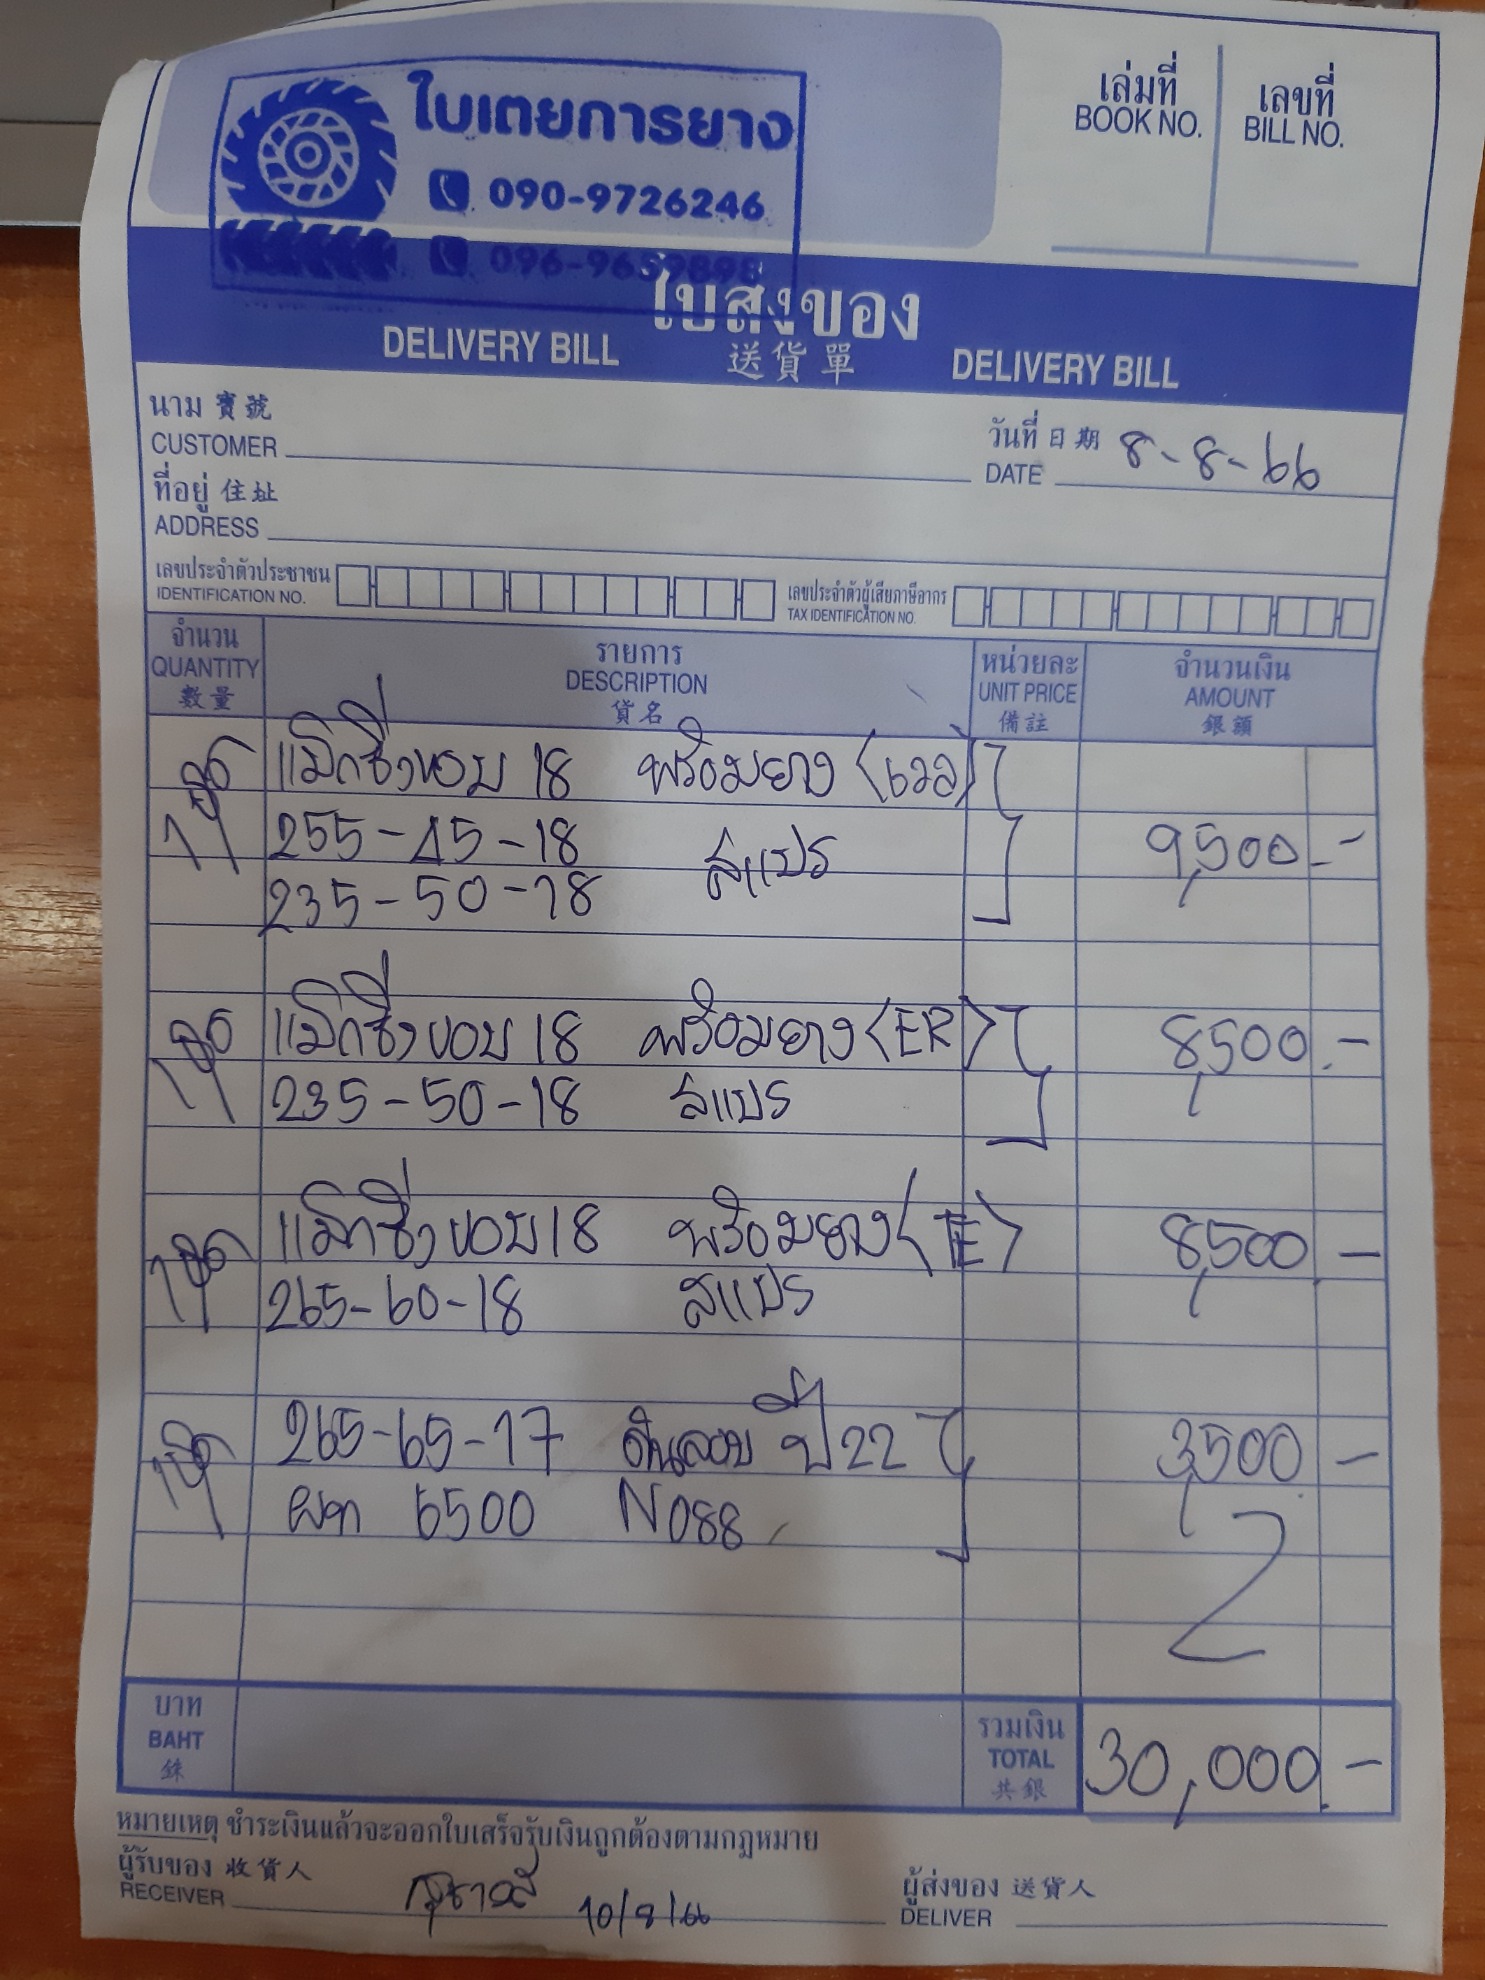 ใบเตยการยาง
090-9726246
096-9659898
เล่มที่
BOOK NO.
เลขที่
BILL NO.
ใบส่งของ
DELIVERY BILL 送貨單 DELIVERY BILL
นาม 寶號
CUSTOMER
วันที่ 日期
DATE 8-8-66
ที่อยู่ 住址
ADDRESS
เลขประจำตัวประชาชน
IDENTIFICATION NO.
เลขประจำตัวผู้เสียภาษีอากร
TAX IDENTIFICATION NO.
จำนวน
QUANTITY
數量
รายการ
DESCRIPTION
貨名
หน่วยละ
UNIT PRICE
備註
จำนวนเงิน
AMOUNT
銀額
1 ชุด แม็กซิ่งขอบ 18 พร้อมยาง (เวล)
255-45-18 สแปร 9,500.-
235-50-18
1 ชุด แม็กซิ่งขอบ 18 พร้อมยาง <ER> 8,500.-
235-50-18 สแปร
1 ชุด แม็กซิ่งขอบ 18 พร้อมยาง <TE> 8,500 -
265-60-18 สแปร
1 ชุด 265-65-17 ดันลอบ ปี 22 3,500 -
5500 N088
บาท
BAHT
銖
รวมเงิน
TOTAL
共銀
30,000.-
หมายเหตุ ชำระเงินแล้วจะออกใบเสร็จรับเงินถูกต้องตามกฎหมาย
ผู้รับของ 收貨人
RECEIVER 10/8/66
ผู้ส่งของ 送貨人
DELIVER